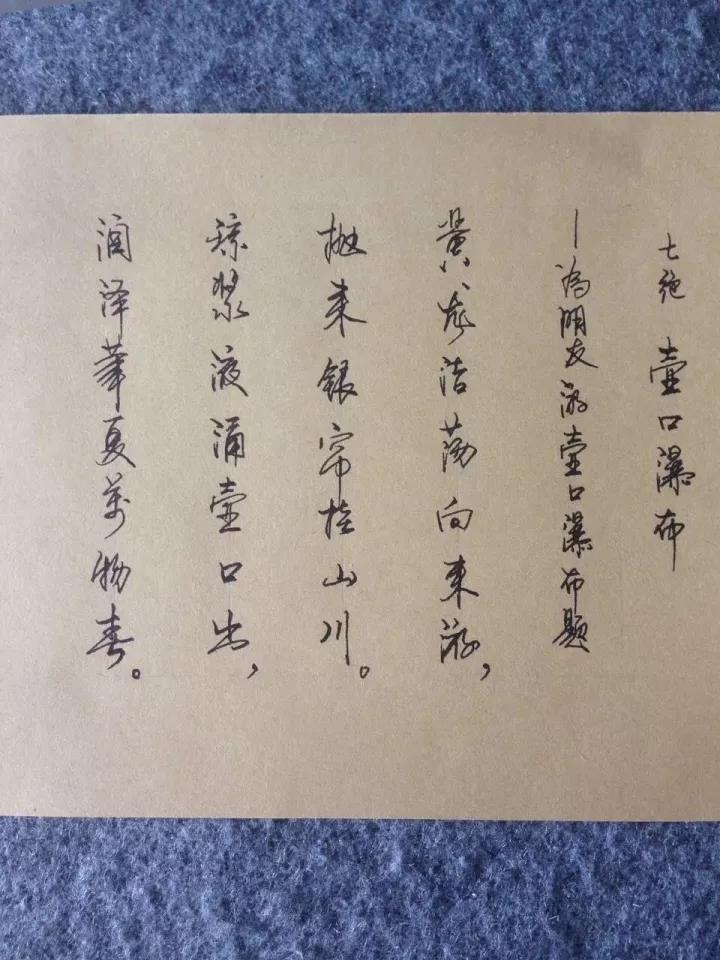 七绝 壶口瀑布
—为朋友游壶口瀑布题
黄龙浩荡向东游，
抛来银帘挂山川。
琼浆液涌壶口出，
润泽華夏萬物春。